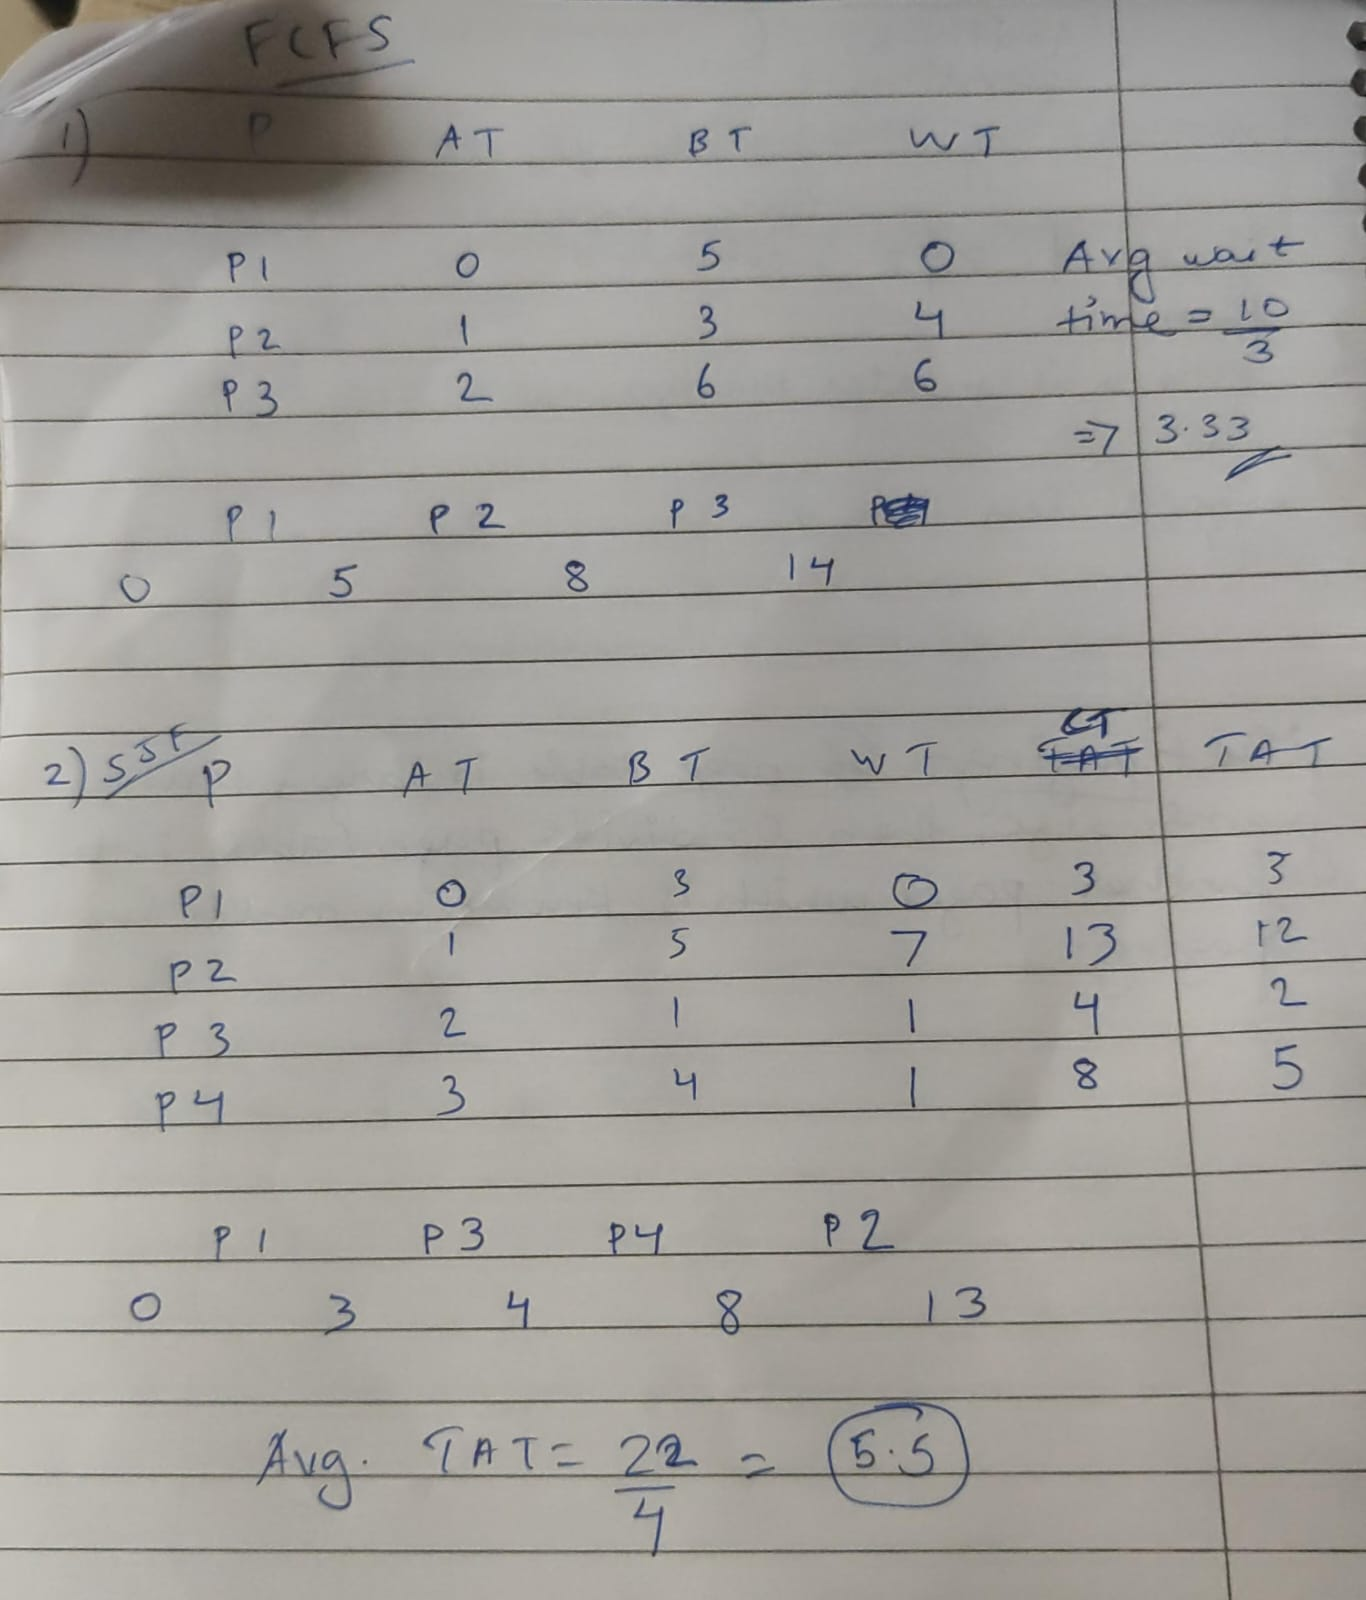 FCFS
1) P AT BT WT
P1 0 5 0 Avg wait
P2 1 3 4 time = 10/3
P3 2 6 6
=> 3.33
P1 P2 P3
0 5 8 14
2) SJF P AT BT WT CT TAT
P1 0 3 0 3 3
P2 1 5 7 13 12
P3 2 1 1 4 2
P4 3 4 1 8 5
P1 P3 P4 P2
0 3 4 8 13
Avg. TAT = 22/4 = 5.5